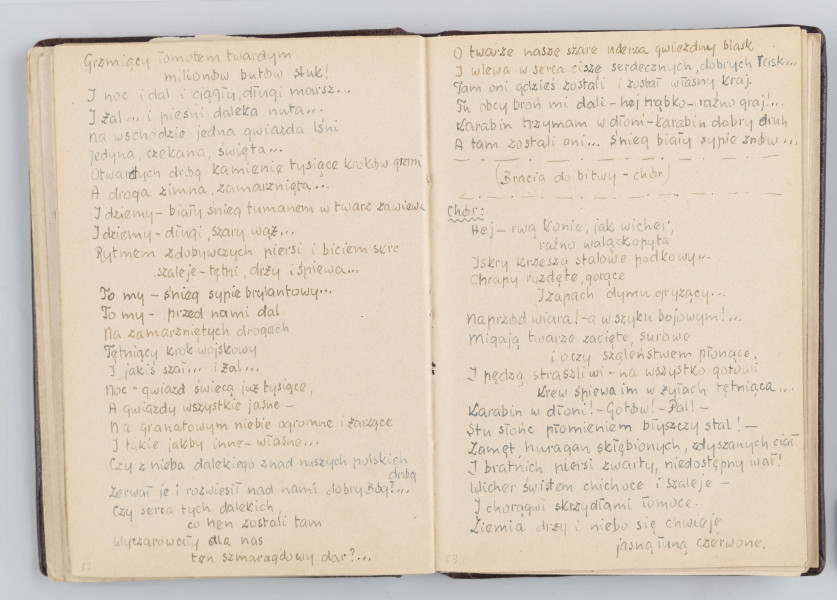 Grzmiący łomotem twardym
milionów butów stuk!
I noc i dal i ciągły, długi marsz...
I żal... i pieśni daleka nuta...
Na wschodzie jedna gwiazda lśni
Jedyna, czekana, święta...
Otwartych dróg kamienie tysiące kroków grzmi
A droga zimna, zamarznięta...
Idziemy - biały śnieg tumanem w twarz zawiewa
Idziemy - długi, szary wąż...
Rytmem zdobywczych piersi i biciem serc
szaleje - tętni, drży i śpiewa...
To my - śnieg sypie brylantowy...
To my - przed nami dal
Na zamarzniętych drogach
Tętniący krok wojskowy
I jakiś szał... i żal...
Noc - gwiazd świecą już tysiące,
A gwiazdy wszystkie jasne -
Na granatowym niebie ogromne i żarzące
I takie jakby inne - własne...
Czy z nieba dalekiego znad naszych polskich
dróg
Zerwał je i rozwiesił nad nami dobry Bóg?...
Czy serca tych dalekich,
co hen zostali tam
Wyczarowały dla nas
ten szmaragdowy dar?...
O twarze nasze szare uderza gwiezdny blask
I wlewa w serca ciszę serdecznych, dobrych łask...
Tam oni gdzieś zostali i został własny kraj.
Tu obcy broń mi dali - hej trąbko - raźno graj!...
Karabin trzymam w dłoni - karabin dobry druh
A tam zostali oni... śnieg biały sypie znów...
(Bracia do bitwy - chór)
Chór:
Hej - rwą konie, jak wicher,
raźno walą z kopyta
Iskry krzeszą stalowe podkowy...
Chrapy rozdęte, gorące
I zapach dymu gryzący...
Naprzód wiara! - a w szyku bojowym!...
Migają twarze zacięte, surowe
i oczy szaleństwem płonące.
I pędzą straszliwi - na wszystko gotowi
Krew śpiewa im w żyłach tętniąca...
Karabin w dłoni! - Gotów! - Pal! -
Stu słońc płomieniem błyszczy stal! -
Zamęt, huragan skłębionych, zdyszanych ciał
I bratnich piersi zwarty, niedostępny wał!
Wicher świstem chichoce i szaleje -
I chorągwi skrzydłami łomoce.
Ziemia drży i niebo się chwieje
jasną łuną czerwone.
63